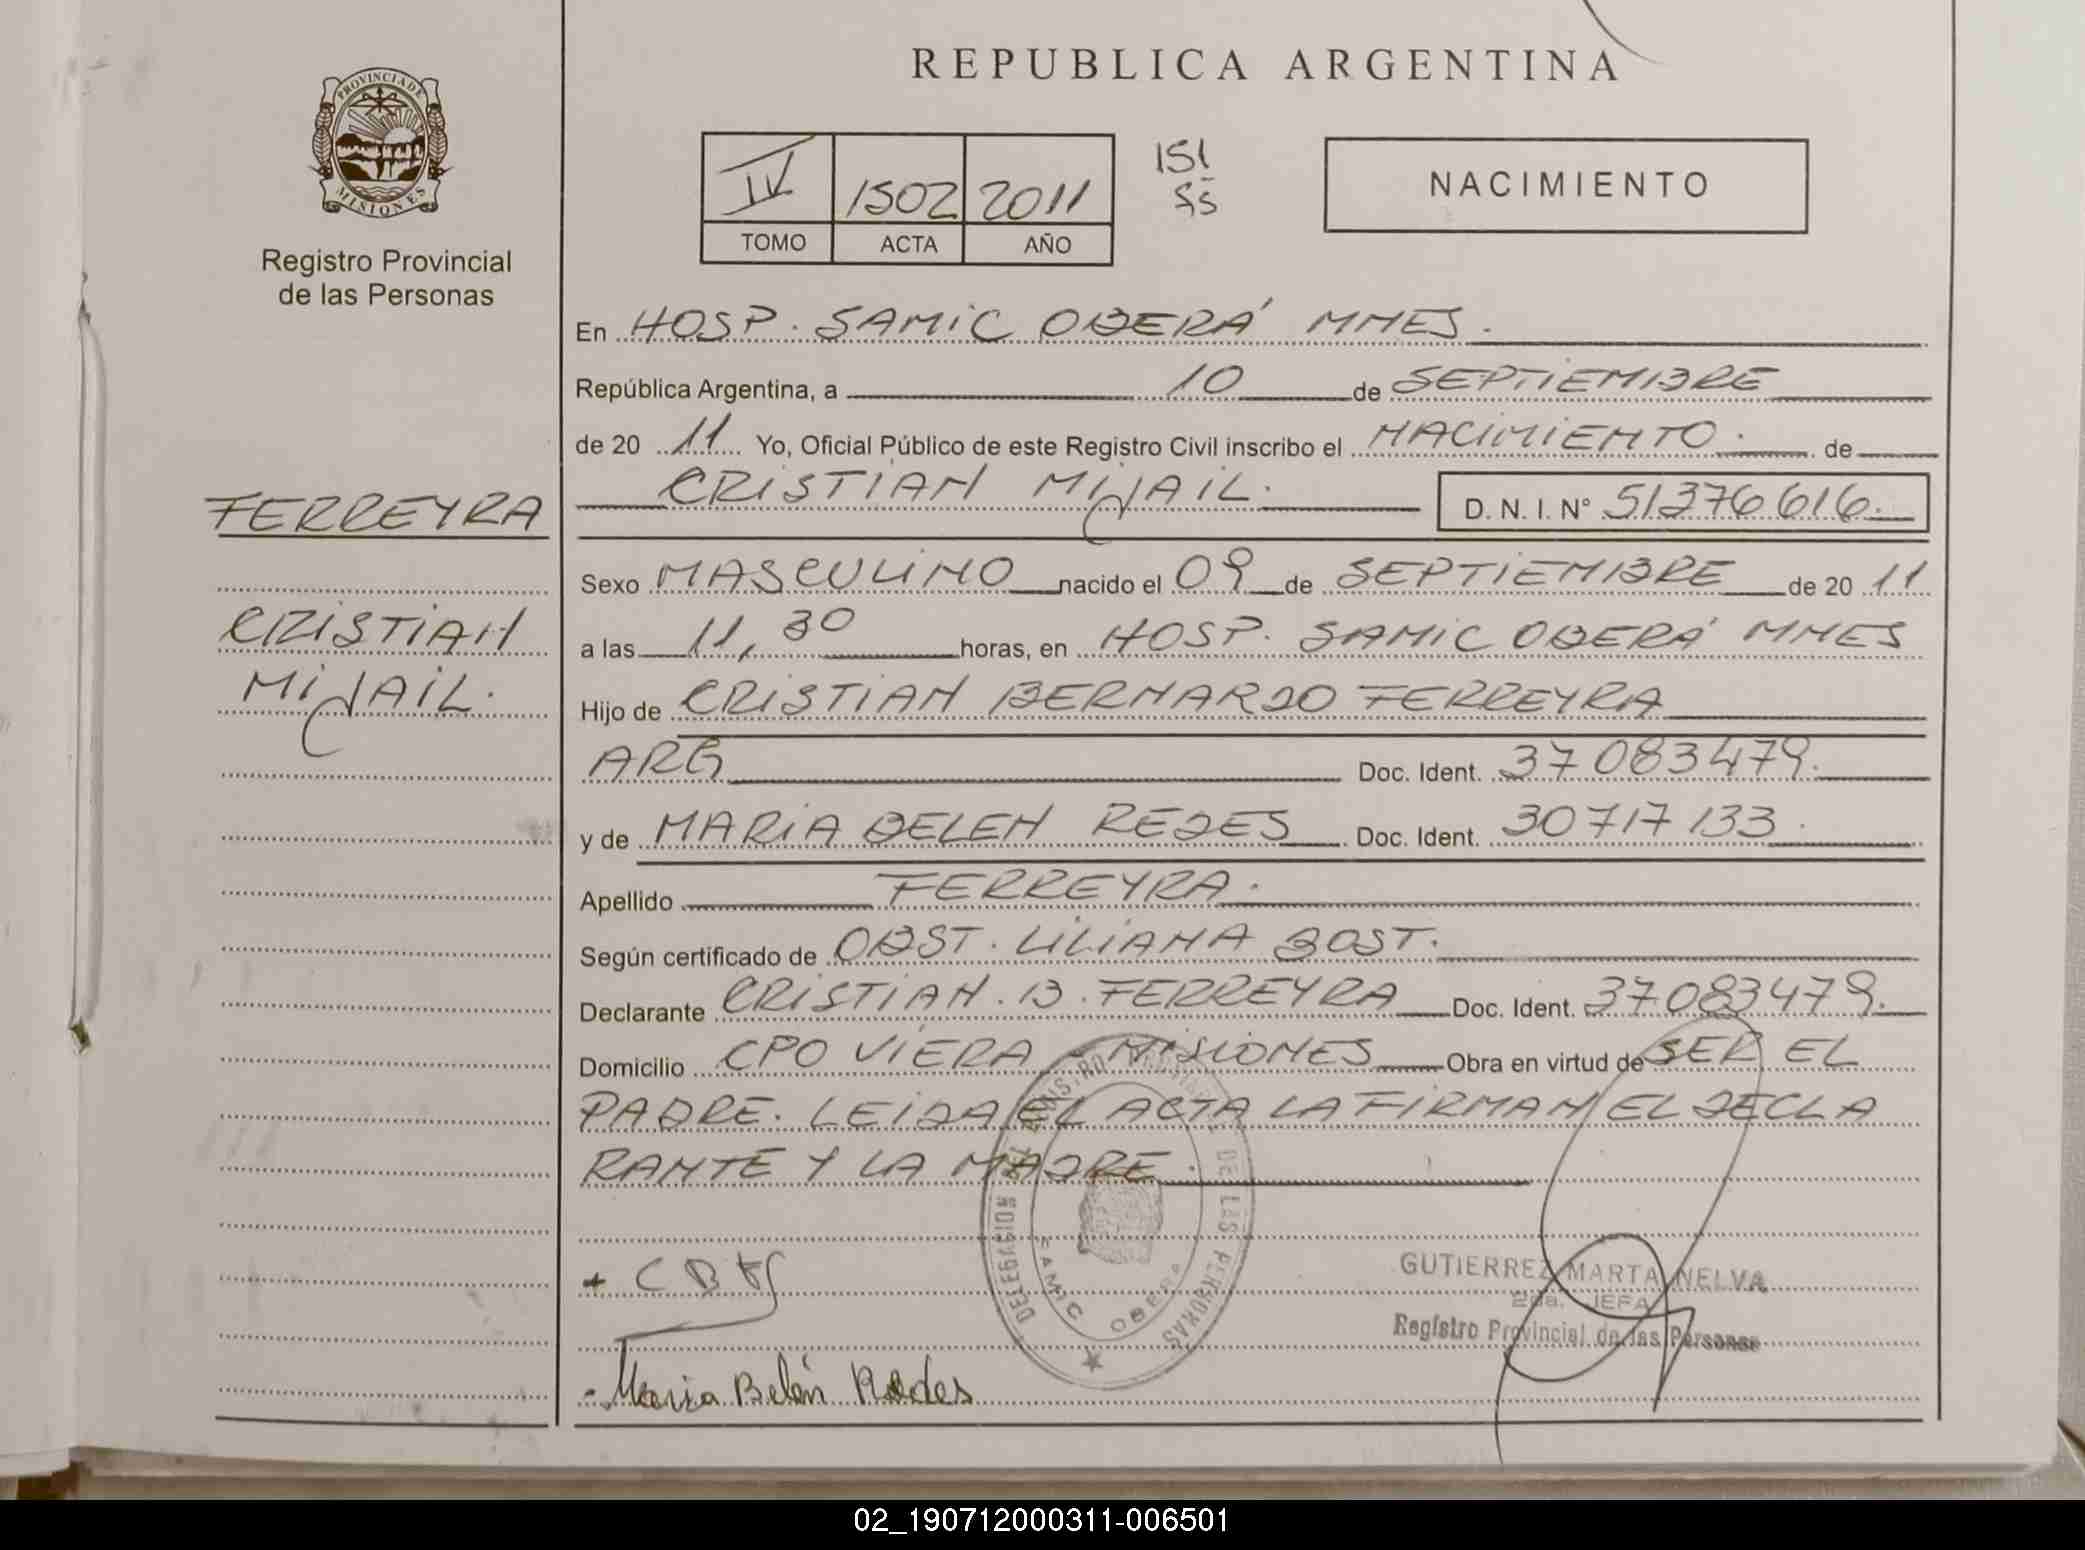 REPUBLICA ARGENTINA
PROVINCIA DE
MISIONES
Registro Provincial
de las Personas
IV 1502 2011
TOMO ACTA AÑO
151
NACIMIENTO
En HOSP. SAMIC OBERÁ MNES.
República Argentina, a 10 de SEPTIEMBRE
de 20 11 Yo, Oficial Público de este Registro Civil inscribo el NACIMIENTO. de
CRISTIAN MIJAIL. D. N. I. N° 51376616.
FERREYRA
CRISTIAN
MIJAIL.
Sexo MASCULINO nacido el 09 de SEPTIEMBRE de 20 11
a las 11,30 horas, en HOSP. SAMIC OBERÁ MNES
Hijo de CRISTIAN BERNARDO FERREYRA
ARG Doc. Ident. 37083479.
y de MARIA BELEN REDES Doc. Ident. 30717133.
Apellido FERREYRA.
Según certificado de OBST. LILIANA BOST.
Declarante CRISTIAN. B. FERREYRA Doc. Ident. 37083479.
Domicilio CPO VIERA - MISIONES Obra en virtud de SER EL
PADRE. LEIDA EL ACTA LA FIRMAN EL DECLA
RANTE Y LA MADRE.
DELEGACION DEL REGISTRO PROVINCIAL DE LAS PERSONAS
SAMIC OBERA
GUTIERREZ MARTA NELVA
2da. JEFA
Registro Provincial de las Personas
Maria Belén Redes
02_190712000311-006501